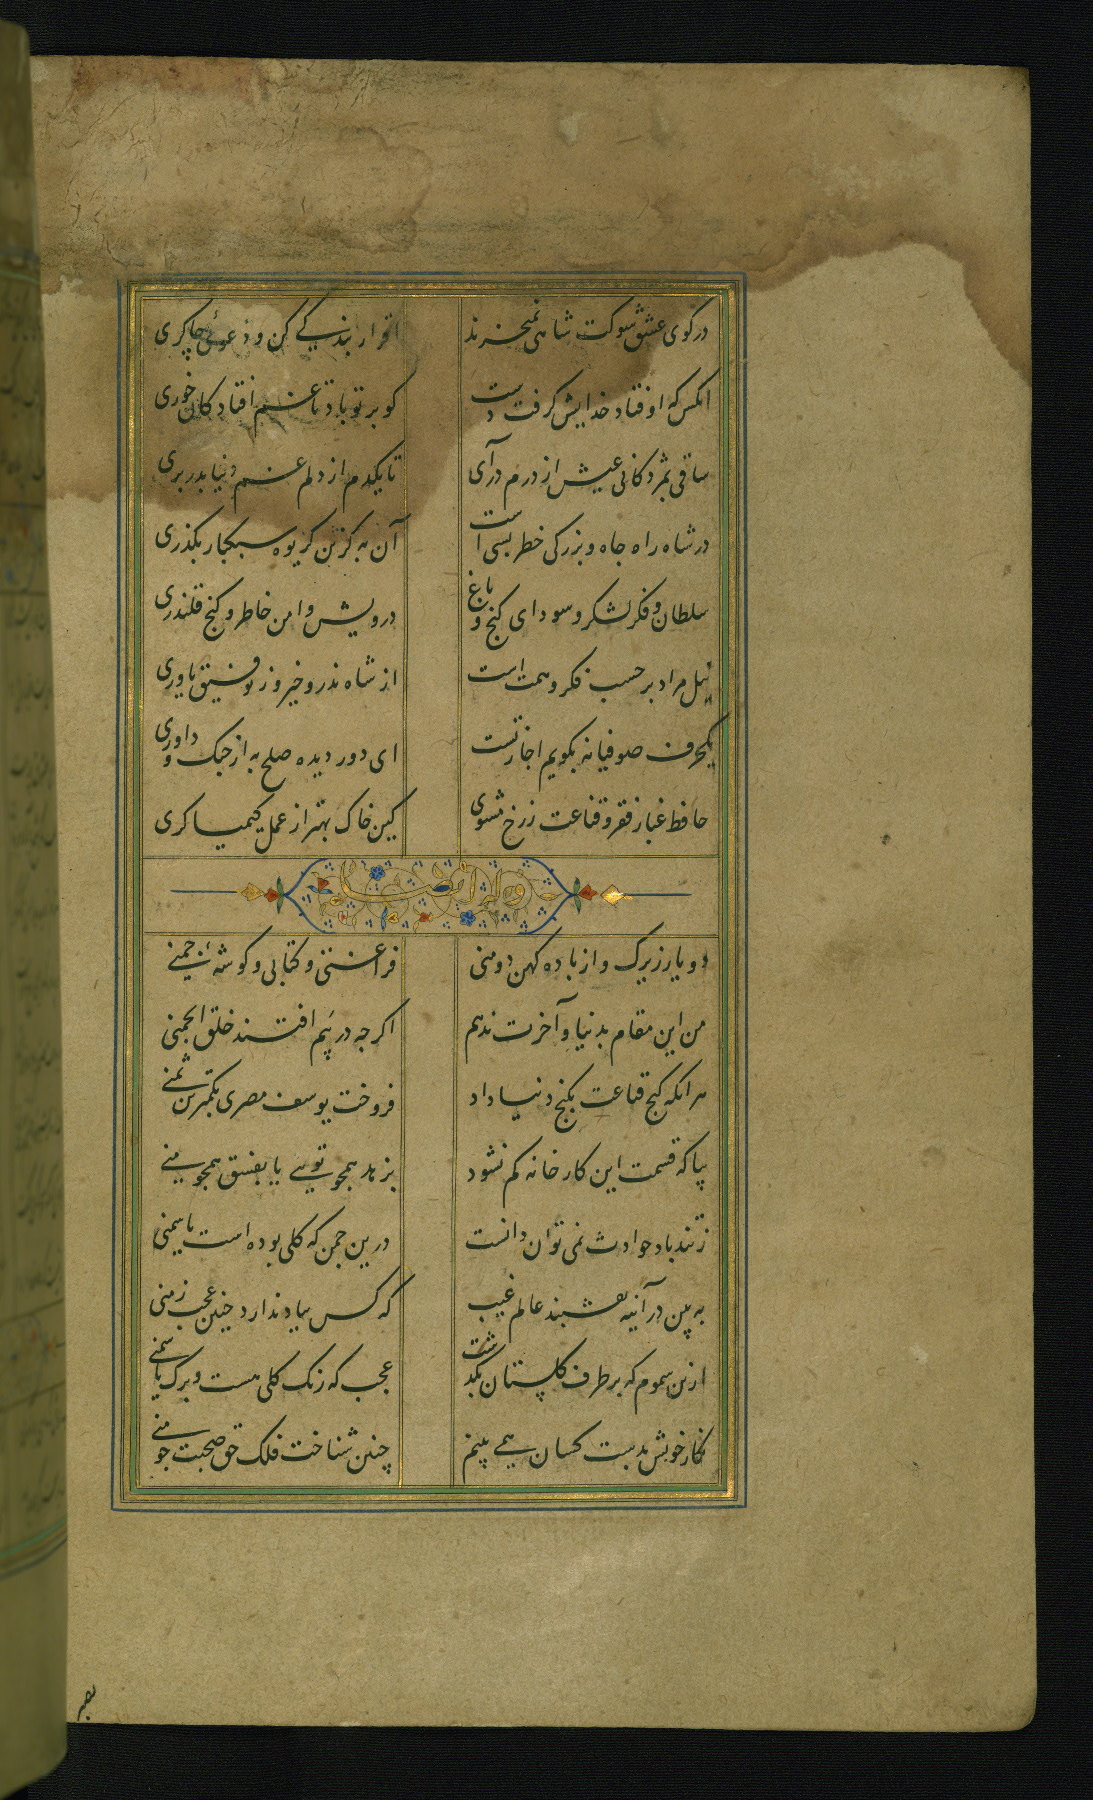 در کوی عشق شوکت شاهی نمیخرند اقرار بندگی کن و دعوئ چاکری
انکس که اوفتاد خدایش گرفت دست کو بر تو باد تا غم افتادگان خوری
ساقی بمژدگانی عیش از درم درآی تا یکدم از دلم غم دنیا بدر بری
در شاه راه جاه و بزرگی خطر بسی است آن به کزین کریوه سبکبار بگذری
سلطان و فکر لشکر و سودای گنج و باغ درویش و امن خاطر و کنج قلندری
نیل مراد بر حسب فکر و همت است از شاه نذر و خیر و ز توفیق یاوری
یکحرف صوفیانه بگویم اجازتست ای دور دیده صلح به از جنگ و داوری
حافظ غبار فقر و قناعت ز رخ مشوی کین خاک بهتر از عمل کیمیاگری
وله ایضا
دو یار زیرک و از باده کهن دومنی فراغتی و کتابی و گوشه چمنی
من این مقام بدنیا و آخرت ندهم اگرچه در پیم افتند خلق انجمنی
هر انکه کنج قناعت بگنج دنیا داد فروخت یوسف مصری بکمترین ثمنی
بیا که قسمت این کارخانه کم نشود بزهد همچو تویی یا بفسق همچو منی
ز تندباد حوادث نمی توان دانست درین چمن که گلی بوده است یاسمنی
به بین در آینه نقشبند عالم غیب که کس بیاد ندارد چنین عجب زمنی
ازین سموم که بر طرف گلستان بگذشت عجب که رنگ گلی هست و برگ یاسمنی
نگار خویش بدست کسان همی بینم چنین شناخت فلک حق صحبت چو منی
بصبر